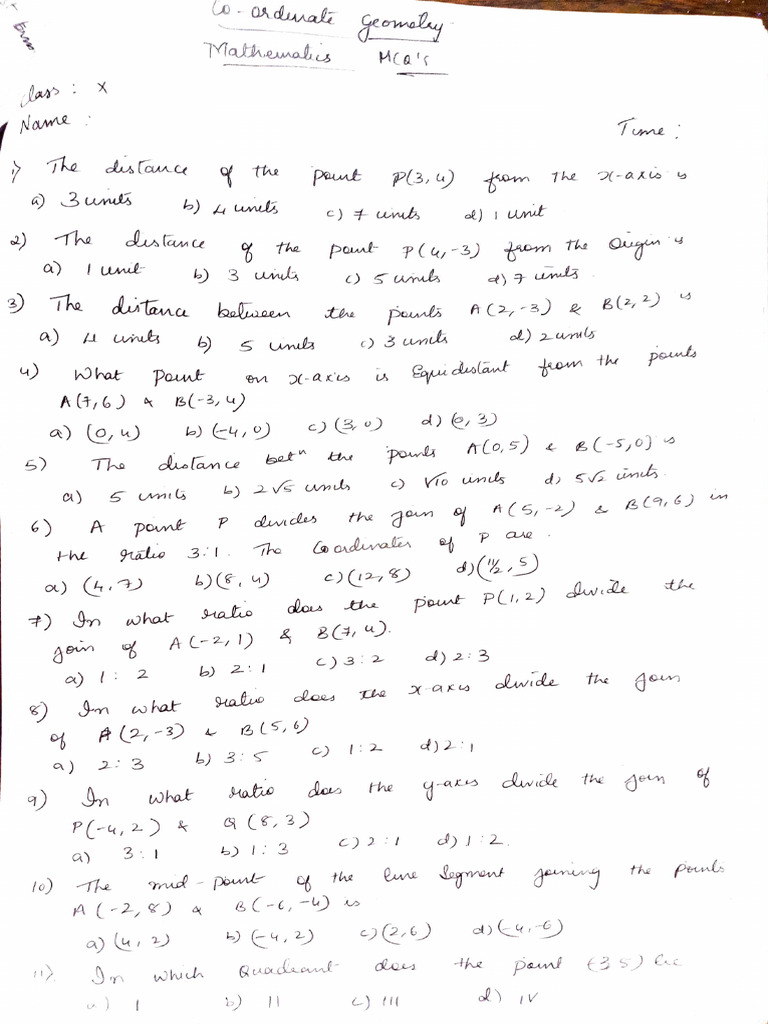 Co-ordinate Geometry
Mathematics MCQ's
Class : X
Name :
Time :
1) The distance of the point P(3,4) from the x-axis is
a) 3 units b) 4 units c) 7 units d) 1 unit
2) The distance of the point P(4,-3) from the Origin is
a) 1 unit b) 3 units c) 5 units d) 7 units.
3) The distance between the points A(2,-3) & B(2,2) is
a) 4 units b) 5 units c) 3 units d) 2 units
4) What point on x-axis is Equidistant from the points
A(7,6) & B(-3,4)
a) (0,4) b) (-4,0) c) (3,0) d) (0,3)
5) The distance betn the points A(0,5) & B(-5,0) is
a) 5 units b) 2√5 units c) √10 units d) 5√2 units.
6) A point P divides the join of A(5,-2) & B(9,6) in
the ratio 3:1. The Coordinates of P are.
a) (4,7) b) (8,4) c) (12,8) d) (11/2, 5)
7) In what ratio does the point P(1,2) divide the
join of A(-2,1) & B(7,4).
a) 1: 2 b) 2:1 c) 3:2 d) 2:3
8) In what ratio does the x-axis divide the join
of A(2,-3) & B(5,6)
a) 2:3 b) 3:5 c) 1:2 d) 2:1
9) In what ratio does the y-axis divide the join of
P(-4,2) & Q(8,3)
a) 3:1 b) 1:3 c) 2:1 d) 1:2.
10) The mid-point of the line Segment joining the points
A(-2,8) & B(-6,-4) is
a) (4,2) b) (-4,2) c) (2,6) d) (-4,-6)
11) In which Quadrant does the point (-3,5) lie
a) I b) II c) III d) IV